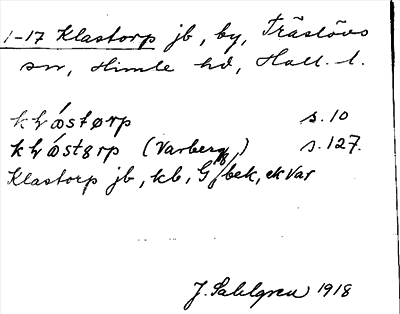 1-17 Klastorp jb, by, Träslövs
sn, Himle hd, Hall. l.
s. 10
(Varberg) s. 127.
Klastorp jb, kb, G bek, ek Var
J. Sahlgren 1918